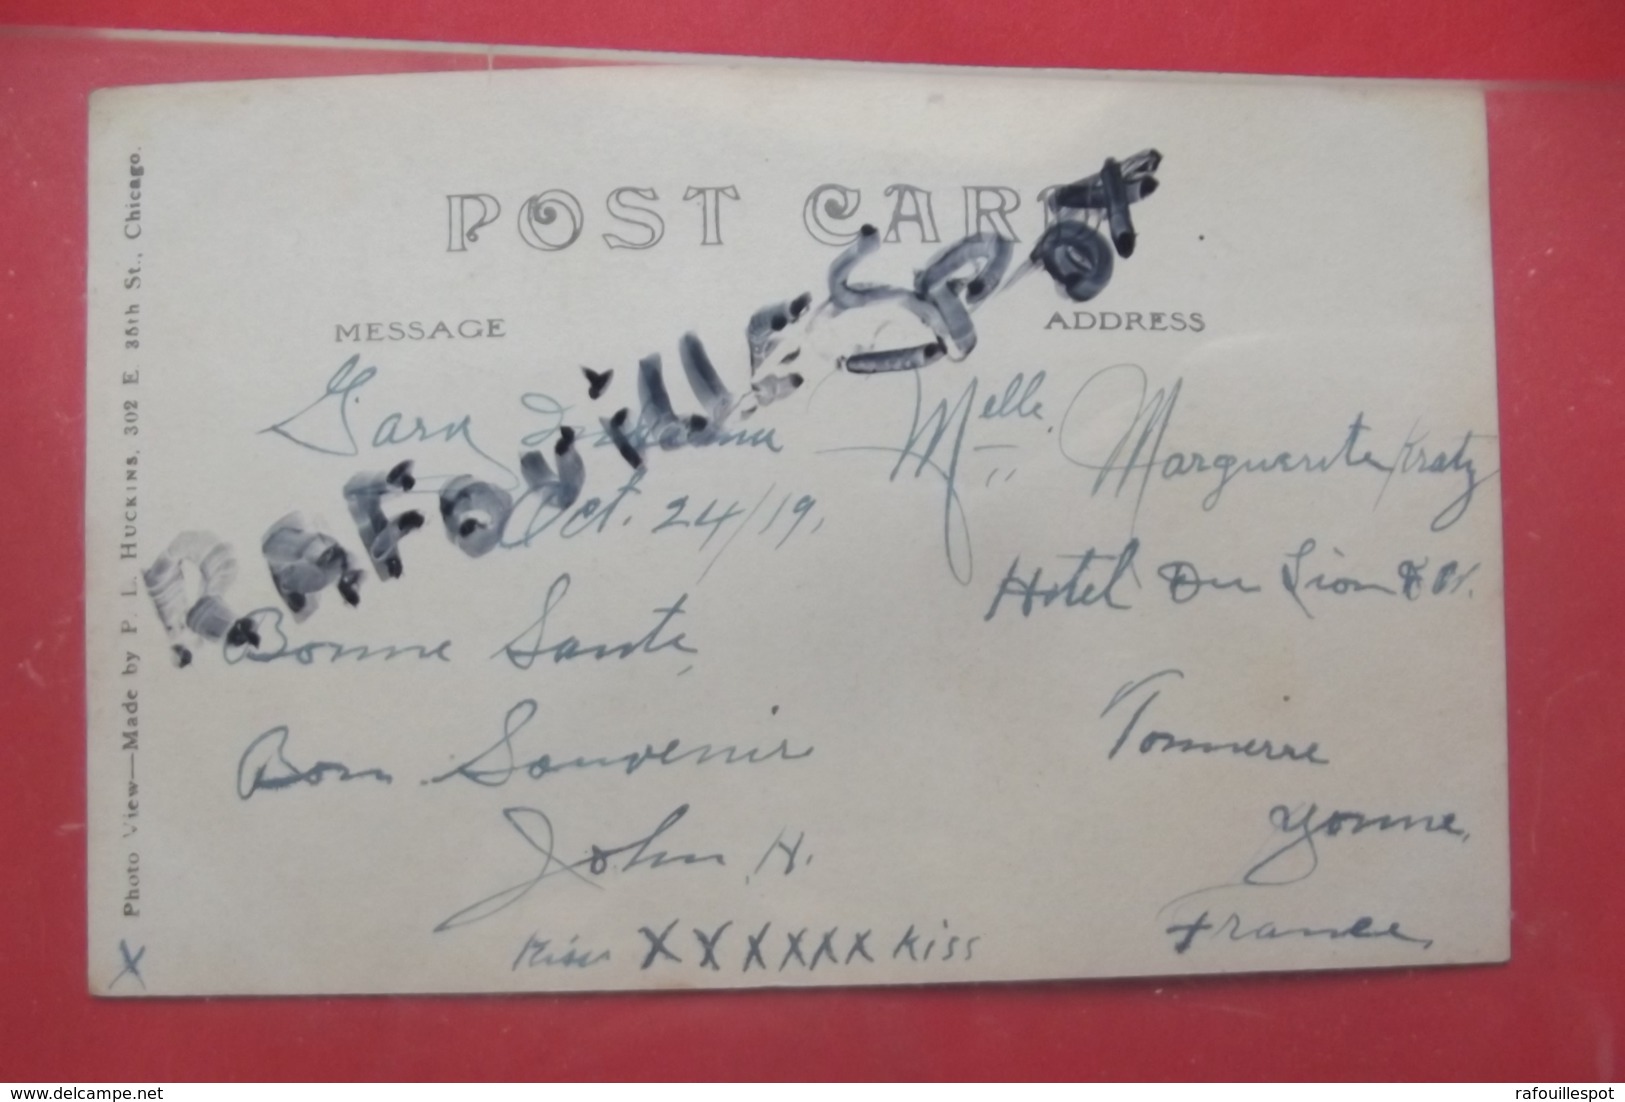 POST CARD
RAFOUILLESPOT
MESSAGE
ADDRESS
Gary Indiana
Oct. 24/19,
Bonne Sante,
Bon Souvenir
John H.
Kiss XXXXXX Kiss
X
Melle. Marguerite Kratz
Hotel Du Lion
Tonnerre
Yonne,
France,
Photo View—Made by P. L. HUCKINS, 302 E. 35th St., Chicago.
delcampe.net
rafouillespot